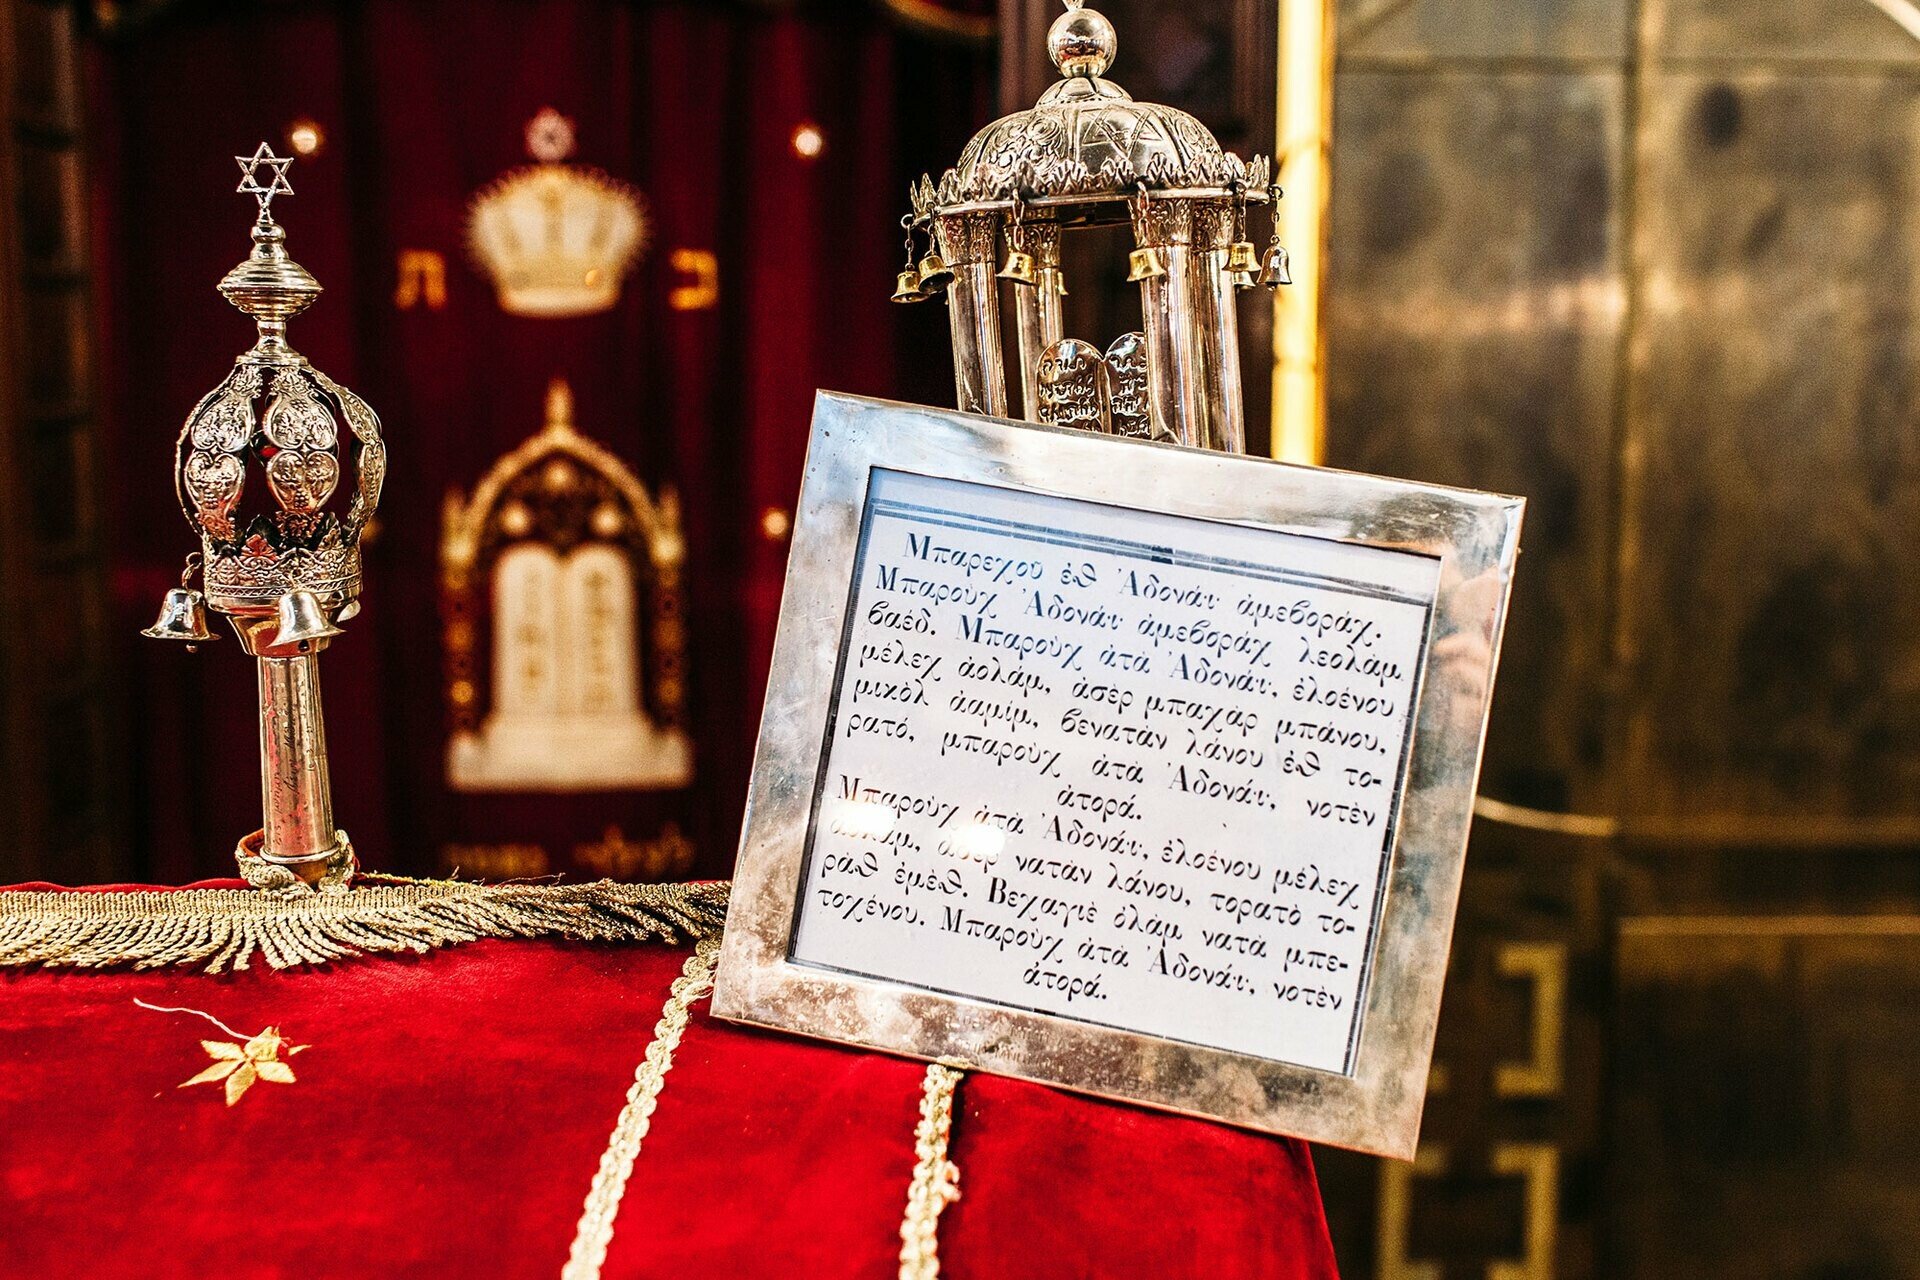 ת כ
Μπαρεχοῦ ἐϑ Ἀδονάϊ ἁμεβοράχ.
Μπαροὺχ Ἀδονάϊ ἁμεβοράχ λεολὰμ
βαέδ. Μπαροὺχ ἀτὰ Ἀδονάϊ, ἐλοένου
μέλεχ ἀολάμ, ἀσὲρ μπαχὰρ μπάνου,
μικὸλ ἀαμίμ, βενατὰν λάνου ἐϑ το-
ρατό, μπαροὺχ ἀτὰ Ἀδονάϊ, νοτὲν
ἀτορά.
Μπαροὺχ ἀτὰ Ἀδονάϊ, ἐλοένου μέλεχ
ἀολάμ, ἀσὲρ νατὰν λάνου, τορατὸ το-
ρὰϑ ἐμὲϑ. Βεχαγιὲ ὀλὰμ νατὰ μπε-
τοχένου. Μπαροὺχ ἀτὰ Ἀδονάϊ, νοτὲν
ἀτορά.